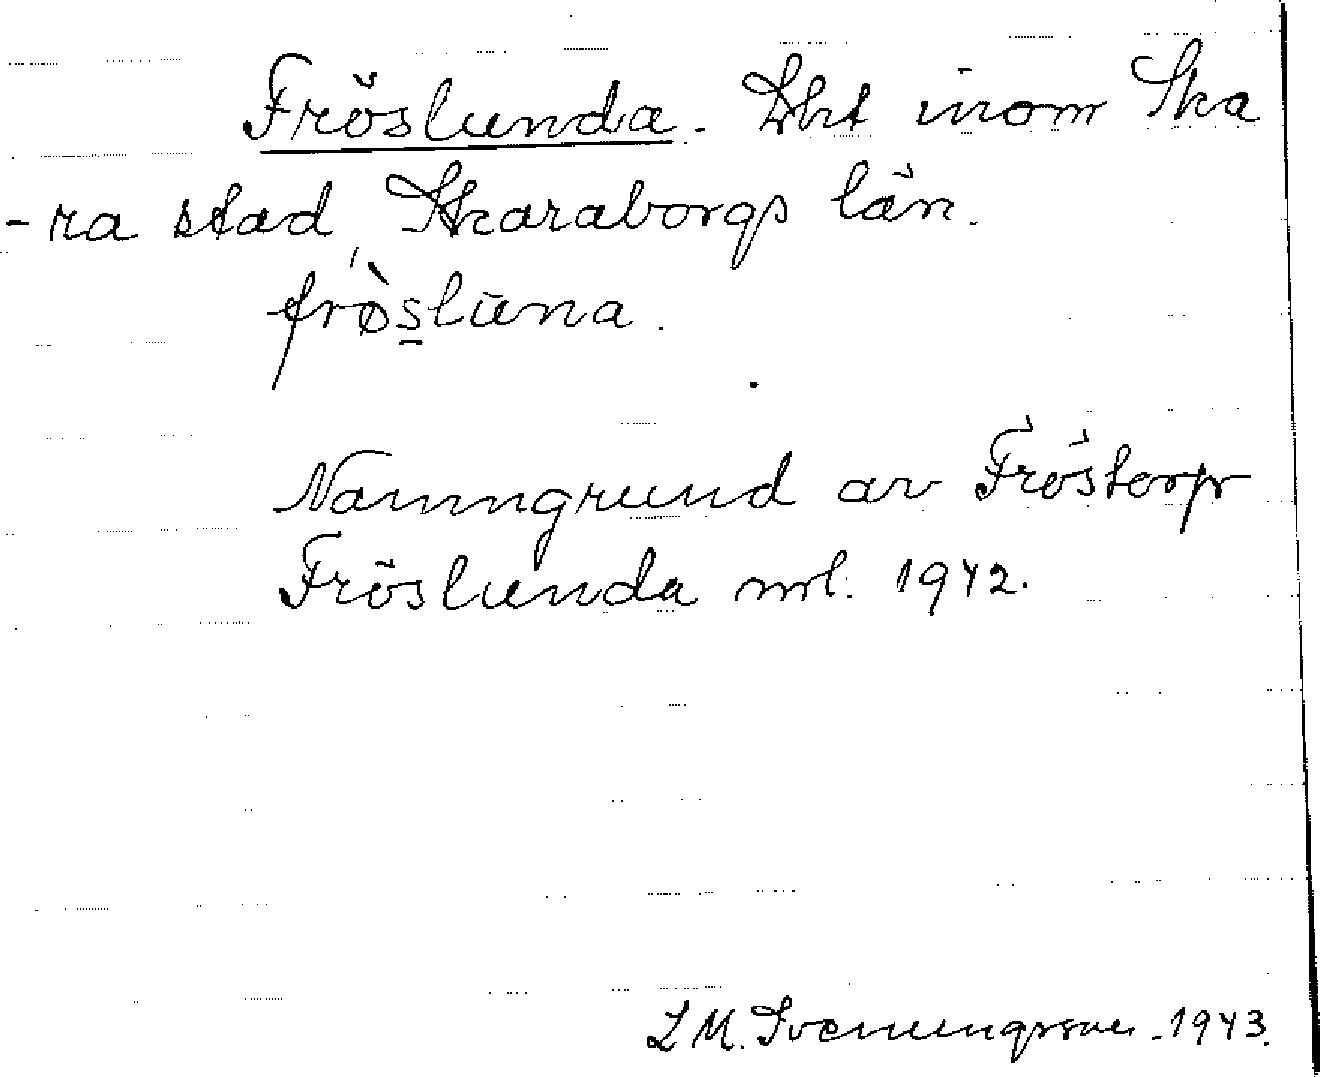 Fröslunda. Lht inom Ska
-ra stad, Skaraborgs län.
frø̀sluna.
Namngrund av Fröstorp
Fröslunda nrl. 1942.
L M. Svenungsson. 1943.